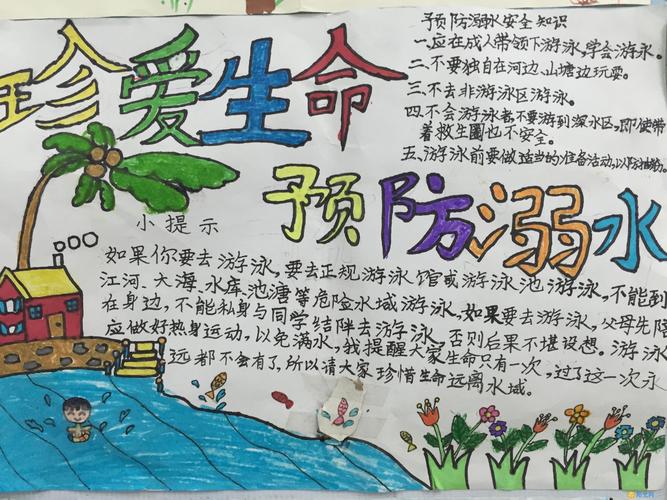 珍爱生命
预防溺水安全知识
一.应在成人带领下游泳,学会游泳。
二.不要独自在河边、山塘边玩耍。
三.不去非游泳区游泳。
四.不会游泳者,不要游到深水区,即使带
着救生圈也不安全。
五、游泳前要做适当的准备活动,以防抽筋。
预防溺水
小提示
如果你要去游泳,要去正规游泳馆或游泳池游泳,不能到
江河、大海、水库、池塘等危险水域游泳,如果要去游泳,父母先陪
在身边,不能私身与同学结伴去游泳,否则后果不堪设想。游泳
应做好热身运动,以免满水,我提醒大家生命只有一次,过了这一次永
远都不会有了,所以请大家珍惜生命远离水域。